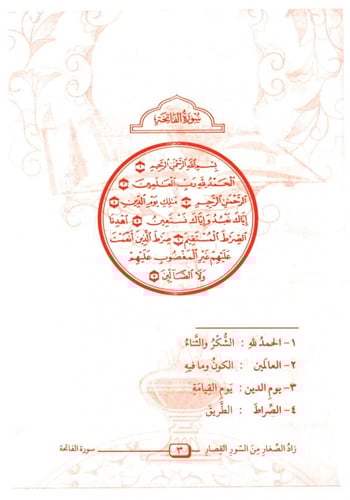 سُورَةُ الفَاتِحَة
بِسْمِ اللَّهِ الرَّحْمَٰنِ الرَّحِيمِ ۝١
الْحَمْدُ لِلَّهِ رَبِّ الْعَالَمِينَ ۝٢
الرَّحْمَٰنِ الرَّحِيمِ ۝٣ مَالِكِ يَوْمِ الدِّينِ ۝٤
إِيَّاكَ نَعْبُدُ وَإِيَّاكَ نَسْتَعِينُ ۝٥ اهْدِنَا
الصِّرَاطَ الْمُسْتَقِيمَ ۝٦ صِرَاطَ الَّذِينَ أَنْعَمْتَ
عَلَيْهِمْ غَيْرِ الْمَغْضُوبِ عَلَيْهِمْ
وَلَا الضَّالِّينَ ۝٧
١- الحمدُ للهِ : الشُّكْرُ والثَّناءُ
٢- العالَمين : الكونُ وما فيهِ
٣- يومِ الدين : يَومِ القِيامَةِ
٤- الصِّراطَ : الطَّريقَ
زادُ الصِّغارِ مِنَ السّورِ القِصارِ
٣
سورة الفاتحة